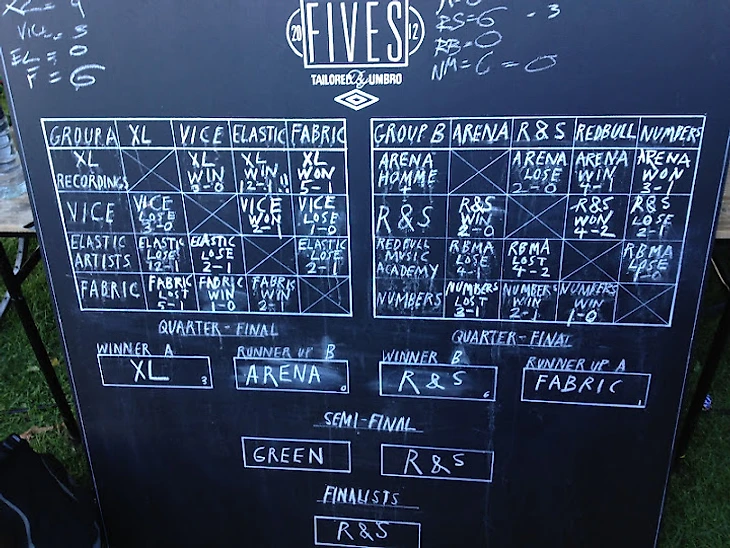 XL = 9
VICE = 3
EL = 0
F = 6
20 FIVES 12
TAILORED By UMBRO
RS = 6 - 3
RB = 0
NM = 6 - 0
GROUP A XL VICE ELASTIC FABRIC
XL RECORDINGS XL WIN 3-0 XL WIN 12-1!! XL WON 5-1
VICE VICE LOSE 3-0 VICE WON 2-1 VICE LOSE 1-0
ELASTIC ARTISTS ELASTIC LOSE 12-1 ELASTIC LOSE 2-1 ELASTIC LOSE 2-1
FABRIC FABRIC LOST 5-1 FABRIC WIN 1-0 FABRIC WIN 2-1
GROUP B ARENA R&S REDBULL NUMBERS
ARENA HOMME + ARENA LOSE 2-0 ARENA WIN 4-1 ARENA WON 3-1
R&S R&S WIN 2-0 R&S WON 4-2 R&S LOSE 2-1
REDBULL MUSIC ACADEMY RBMA LOSE 4-1 RBMA LOST 4-2 RBMA LOSE
NUMBERS NUMBERS LOST 3-1 NUMBERS WIN 2-1 NUMBERS WIN 1-0
QUARTER-FINAL
QUARTER-FINAL
WINNER A RUNNER UP B WINNER B RUNNER UP A
XL 3 ARENA 0 R&S 6 FABRIC 1
SEMI-FINAL
GREEN R&S
FINALISTS
R&S